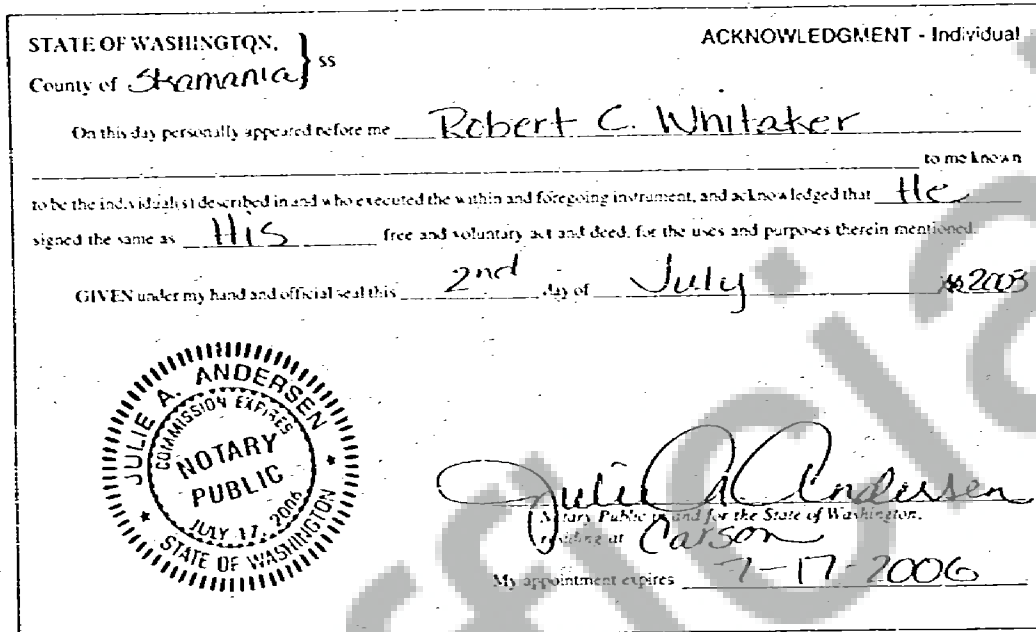 STATE OF WASHINGTON,
County of Skamania } ss
ACKNOWLEDGMENT - Individual
On this day personally appeared before me Robert C. Whitaker
to me known
to be the individual(s) described in and who executed the within and foregoing instrument, and acknowledged that He
signed the same as His free and voluntary act and deed, for the uses and purposes therein mentioned.
GIVEN under my hand and official seal this 2nd day of July 2003
JULIE A. ANDERSEN
COMMISSION EXPIRES
NOTARY
PUBLIC
JULY 17, 2006
STATE OF WASHINGTON
Julie A Andersen
Notary Public in and for the State of Washington,
residing at Carson
My appointment expires 7-17-2006